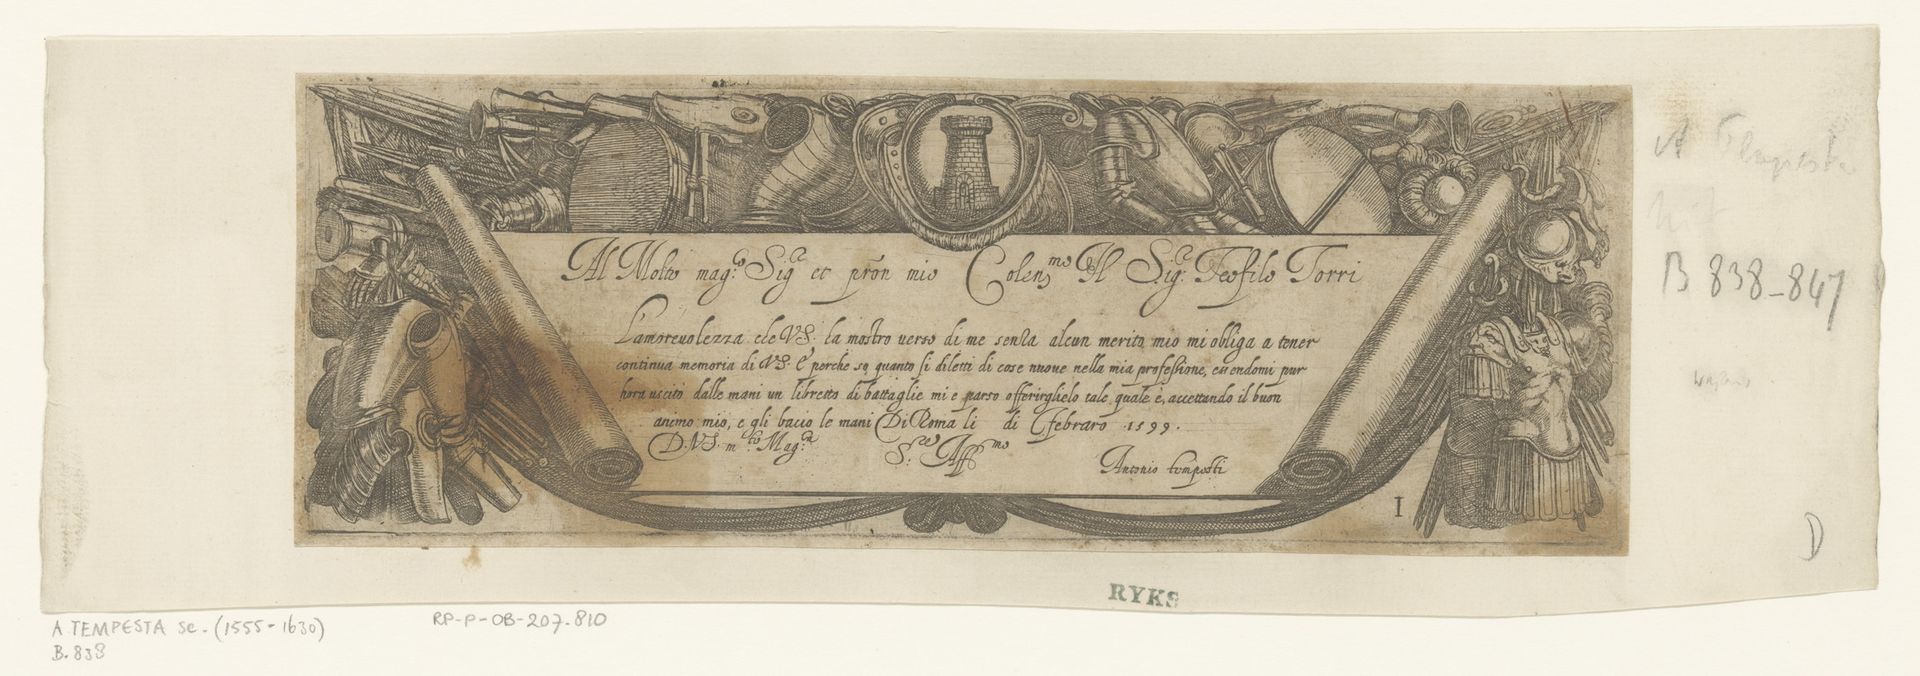 Al Molto mag.co Sig.e et prōn mio Colen.mo Il Sig.r Teofilo Torri
L'amoreuolezza che VS. ha mostro uerso di me senza alcun merito mio mi obliga a tener
continua memoria di VS. E perche so quanto si diletti di cose nuoue nella mia professione, essendomi pur
hora uscito dalle mani un libretto di battaglie mi e parso offerirglielo tale quale è, accettando il buon
animo mio, e gli bacio le mani Di Roma li di Febraro 1599.
D.VS. m.to Mag.ca S.re Aff.mo
Antonio tempesti
I
A Tempesta
B 838-847
D
RYKS
A TEMPESTA sc. (1555-1630)
RP-P-OB-207.810
B.838